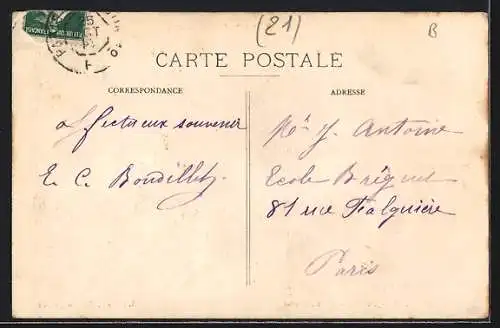 (21)
B
CARTE POSTALE
CORRESPONDANCE
ADRESSE
affectueux souvenir
E. C. Boudillet
Mr J. Antoine
Ecole Bréguet
81 rue Falguière
Paris